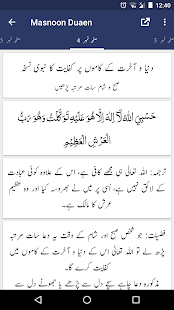 12:40
Masnoon Duaen
صفحہ نمبر 5
صفحہ نمبر 4
صفحہ نمبر 3
دنیا و آخرت کے کاموں پر کفایت کا نبوی نسخہ
صبح و شام سات مرتبہ پڑھیں
حَسْبِيَ اللهُ لَآ اِلٰهَ اِلَّا هُوَ عَلَيْهِ تَوَكَّلْتُ وَهُوَ رَبُّ
الْعَرْشِ الْعَظِيْمِ
ترجمہ: اللہ تعالی ہی مجھے کافی ہے، اس کے علاوہ کوئی عبادت
کے لائق نہیں ہے، اسی پر میں نے بھروسہ کیا اور وہ عظیم
عرش کا مالک ہے۔
فضیلت: جو شخص صبح اور شام کے وقت یہ دعا سات مرتبہ
پڑھ لے تو اللہ تعالی اس کے دنیا و آخرت کے کاموں میں
کفایت کریں گے۔
مذکورہ دعا چاہے سچے دل سے پڑھے یا جھوٹے دل سے